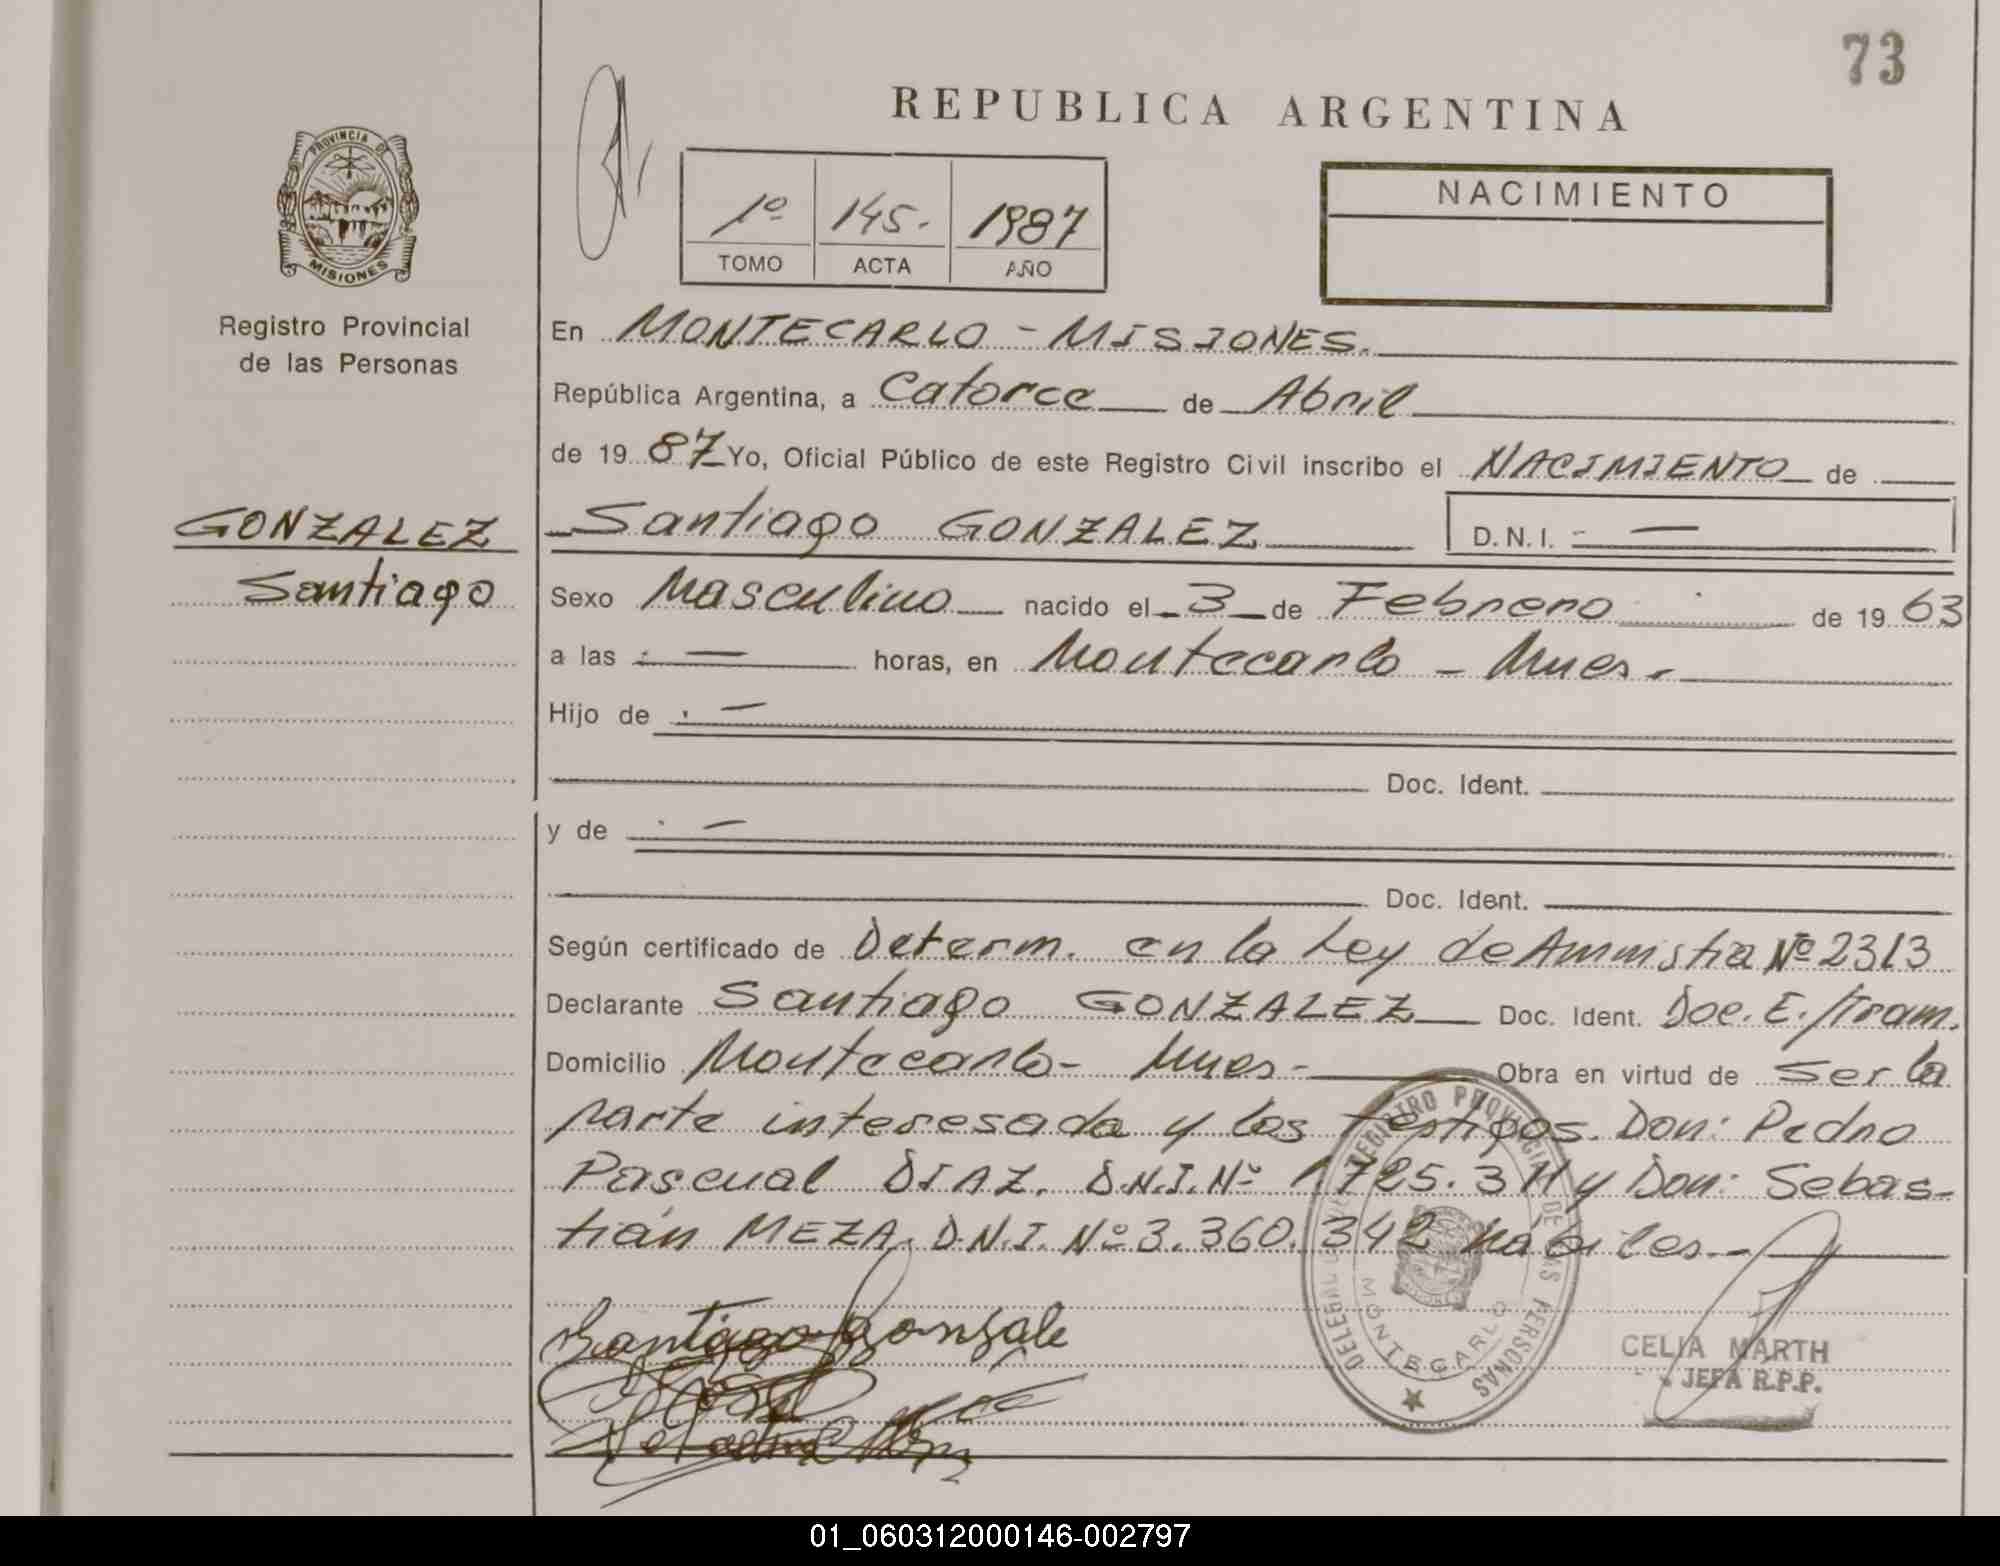 73
REPUBLICA ARGENTINA
PROVINCIA DE
MISIONES
1º 145. 1987
TOMO ACTA AÑO
NACIMIENTO
Registro Provincial
de las Personas
En MONTECARLO - MISIONES.
República Argentina, a Catorce de Abril
de 19 87 Yo, Oficial Público de este Registro Civil inscribo el NACIMIENTO de
GONZALEZ
Santiago
Santiago GONZALEZ D.N.I. -
Sexo Masculino nacido el 3 de Febrero de 19 63
a las - horas, en Montecarlo - Mnes.
Hijo de -
Doc. Ident.
y de -
Doc. Ident.
Según certificado de Determ. en la Ley de Amnistia Nº 2313
Declarante Santiago GONZALEZ Doc. Ident. Doc. E./Tram.
Domicilio Montecarlo - Mnes - Obra en virtud de Ser la
parte interesada y los testigos. Don: Pedro
Pascual DIAZ. D.N.I. Nº 1.725.311 y Don: Sebas-
tián MEZA. D.N.I. Nº 3.360.342 hábiles.-
Santiago Gonzale
REGISTRO PROVINCIAL DE LAS PERSONAS
MONTECARLO
CELIA MARTH
JEFA R.P.P.
01_060312000146-002797